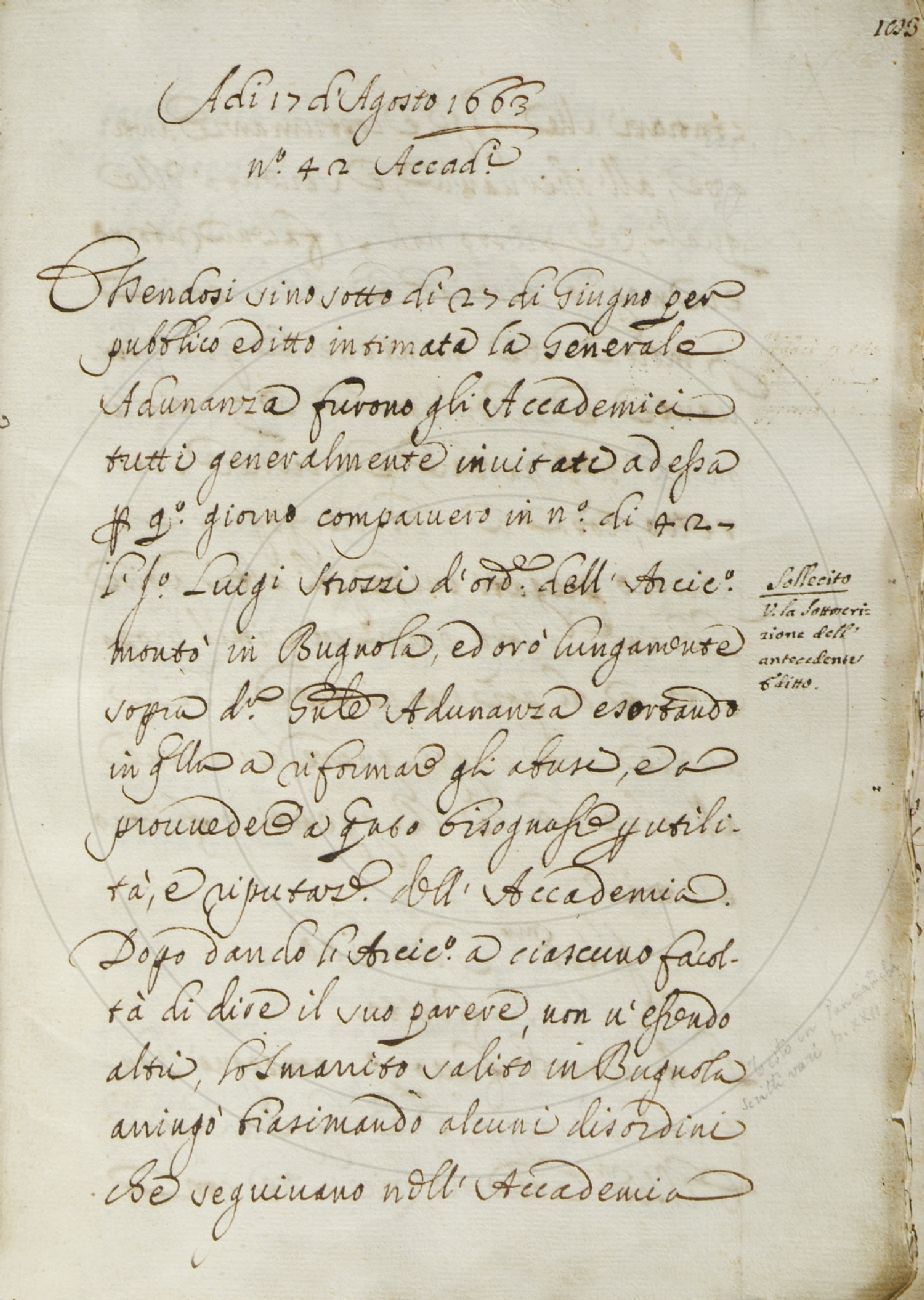 1093
Adi 17 d'Agosto 1663
n.º 42 Accad.i
Essendosi sino sotto di 27 di Giugno per
pubblico editto intimata la Generale
Adunanza furono gli Accademici
tutti generalmente invitati ad essa
giorno comparvero in n.º di 42-
l'Jº. Luigi Strozzi d'ord.e dell' Arcic.º
montò in Bugnola, ed orò lungamente
sopra d.a Gnle Adunanza esortando
in qlla a riformare gli abusi, e a
provvedere a qnto bisognasse p utili-
tà, e riputaz.e dell' Accademia.
Dopo dando l'Arcic.º a ciascuno facol-
tà di dire il suo parere, non v'essendo
altri, lo Smarrito salito in Bugnola
arringò biasimando alcuni disordini
che seguivano nell' Accademia
Sollecito
V. la Sottoscri-
zione dell'
antecedente
Editto.
scritti vari